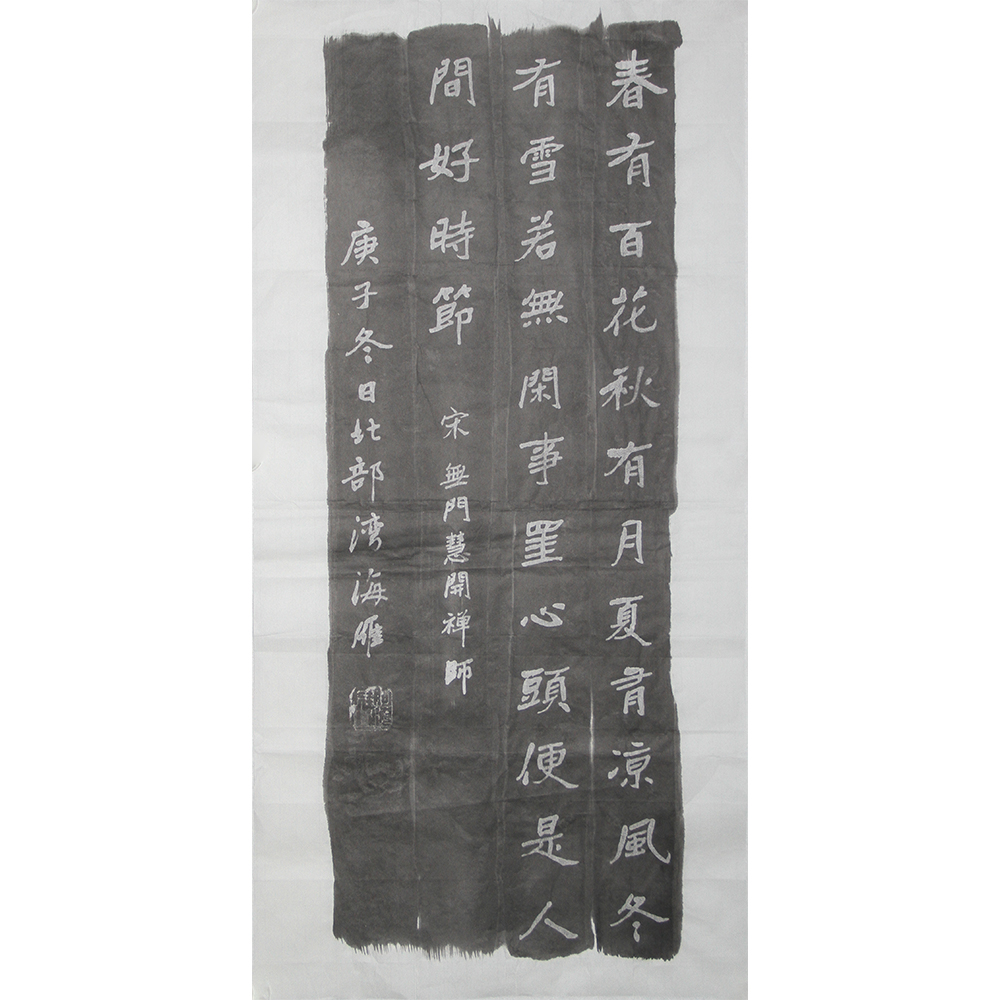 春有百花秋有月夏有凉風冬
有雪若無閑事罣心頭便是人
間好時節 宋無門慧開禅師
庚子冬日北部湾海雁